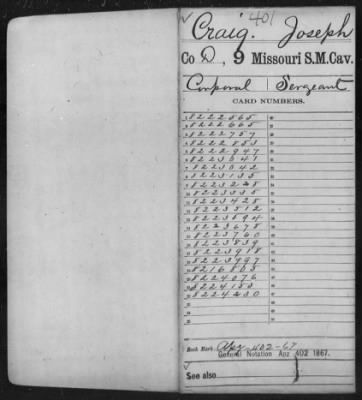 401
Craig. Joseph
Co D, 9 Missouri S.M.Cav.
Corporal | Sergeant
CARD NUMBERS.
8222565
8222665
8222757
8222853
8222947
8223041
8223042
8223135
8223228
8223335
8223428
8223512
8223594
8223678
8223760
8223839
8223918
8223997
8216805
8224076
8224153
8224230
Book Mark: Apz 402-67
General Notation Apz 402 1867.
See also